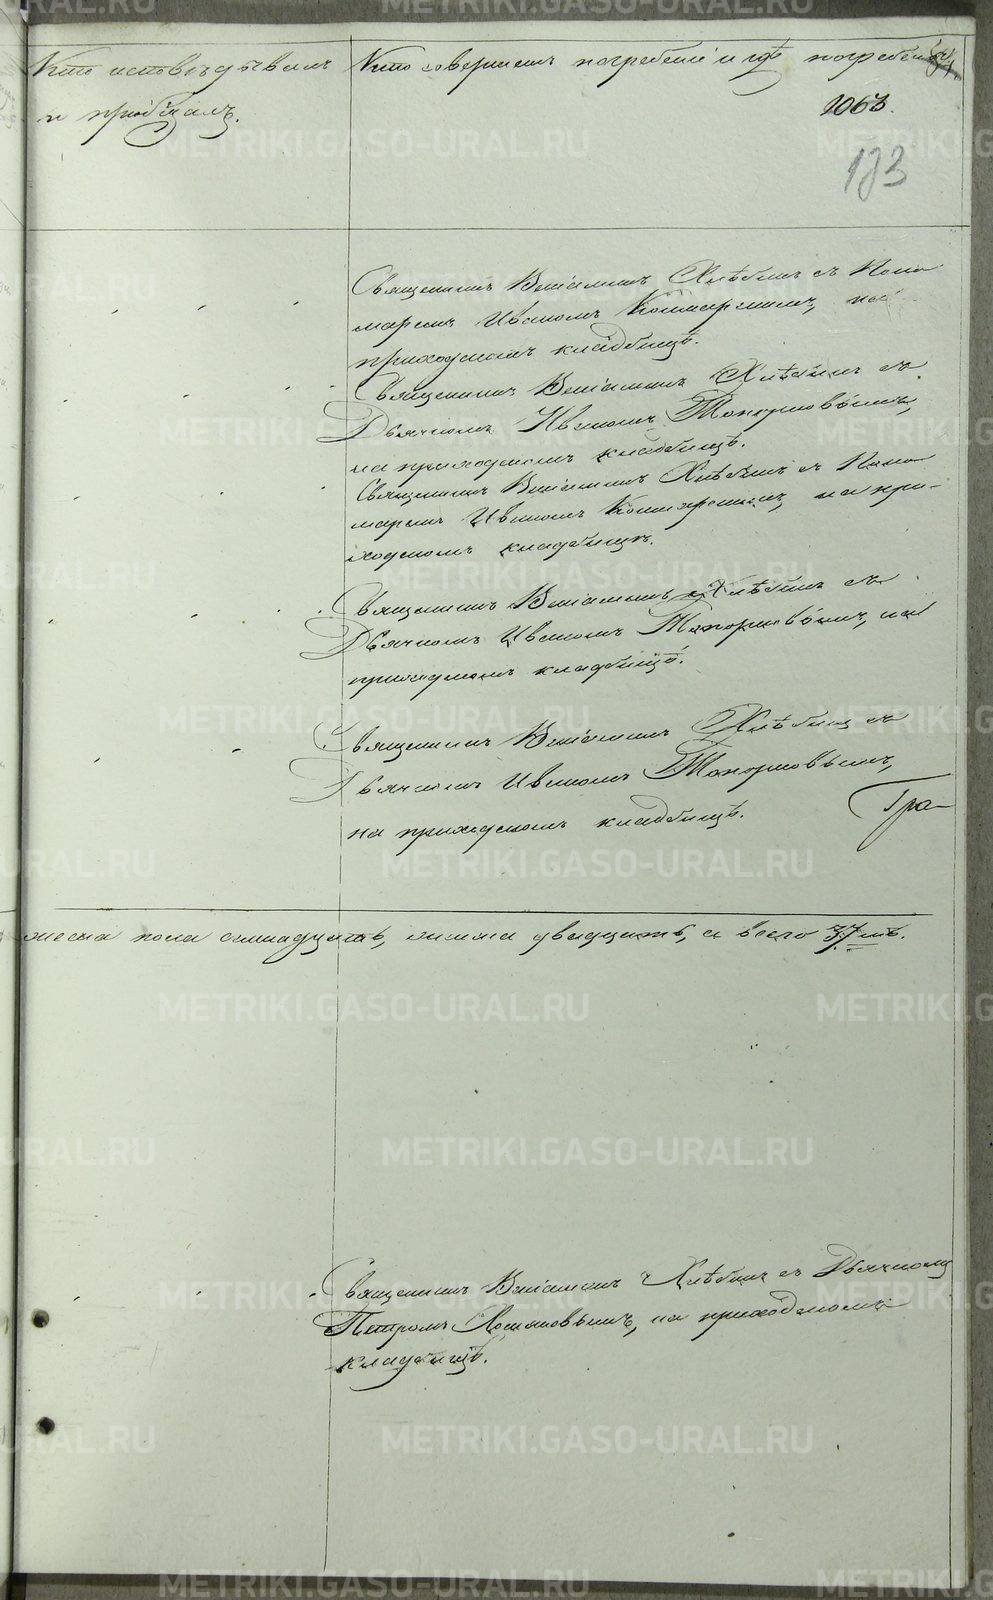 Кто исповѣдывалъ и пріобщалъ.
Кто совершалъ погребеніе и гдѣ погребены
1063.
173
Священникъ Веніаминъ Хлѣбинъ съ Поно
маремъ Иваномъ Кошкарскимъ, на
приходскомъ кладбищѣ.
Священникъ Веніаминъ Хлѣбинъ съ
Дьячкомъ Иваномъ Топорковымъ,
на приходскомъ кладбищѣ.
Священникъ Веніаминъ Хлѣбинъ съ Поно
маремъ Иваномъ на при-
ходскомъ кладбищѣ.
Священникъ Веніаминъ Хлѣбинъ съ
Дьячкомъ Иваномъ Топорковымъ, на
приходскомъ кладбищѣ.
Священникъ Веніаминъ Хлѣбинъ съ
Дьячкомъ Иваномъ Топорковымъ,
на приходскомъ кладбищѣ.
Гра-
жеска пола семнадцать, женска двадцать, а всего 37мь.
Священникъ Веніаминъ Хлѣбинъ съ Дьячкомъ
Петромъ на приходскомъ
кладбищѣ.
METRIKI.GASO-URAL.RU